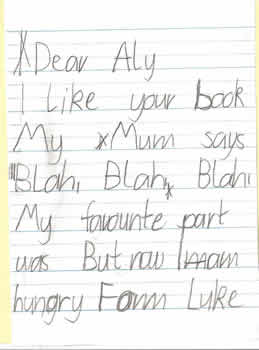 Dear Aly
I Like your book
My Mum says
Blah, Blah, Blah,
My favourite part
was But now I am
hungry Form Luke